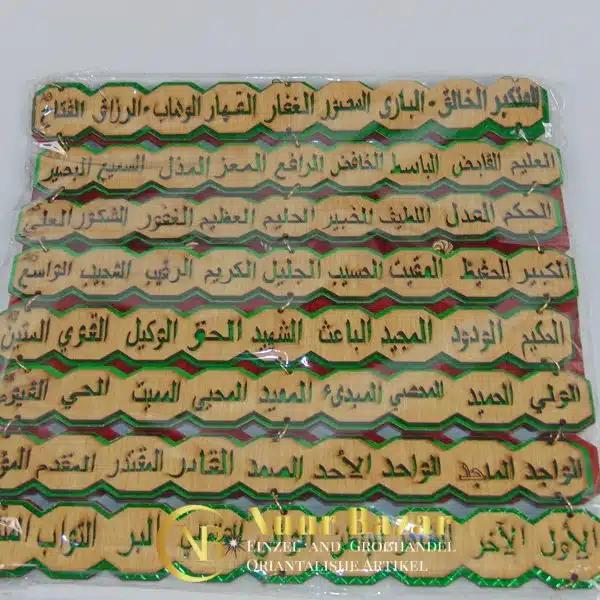 المتكبر الخالق البارئ المصور الغفار القهار الوهاب الرزاق الفتاح
العليم القابض الباسط الخافض الرافع المعز المذل السميع البصير
الحكم العدل اللطيف الخبير الحليم العظيم الغفور الشكور العلي
الكبير الحفيظ المقيت الحسيب الجليل الكريم الرقيب المجيب الواسع
الحكيم الودود المجيد الباعث الشهيد الحق الوكيل القوي المتين
الولي الحميد المحصي المبدئ المعيد المحيي المميت الحي القيوم
الواجد الماجد الواحد الأحد الصمد القادر المقتدر المقدم
الأول الآخر البر التواب
Nuur Bazar
EINZEL-AND GROßHANDEL
ORIANTALISHE ARTIKEL